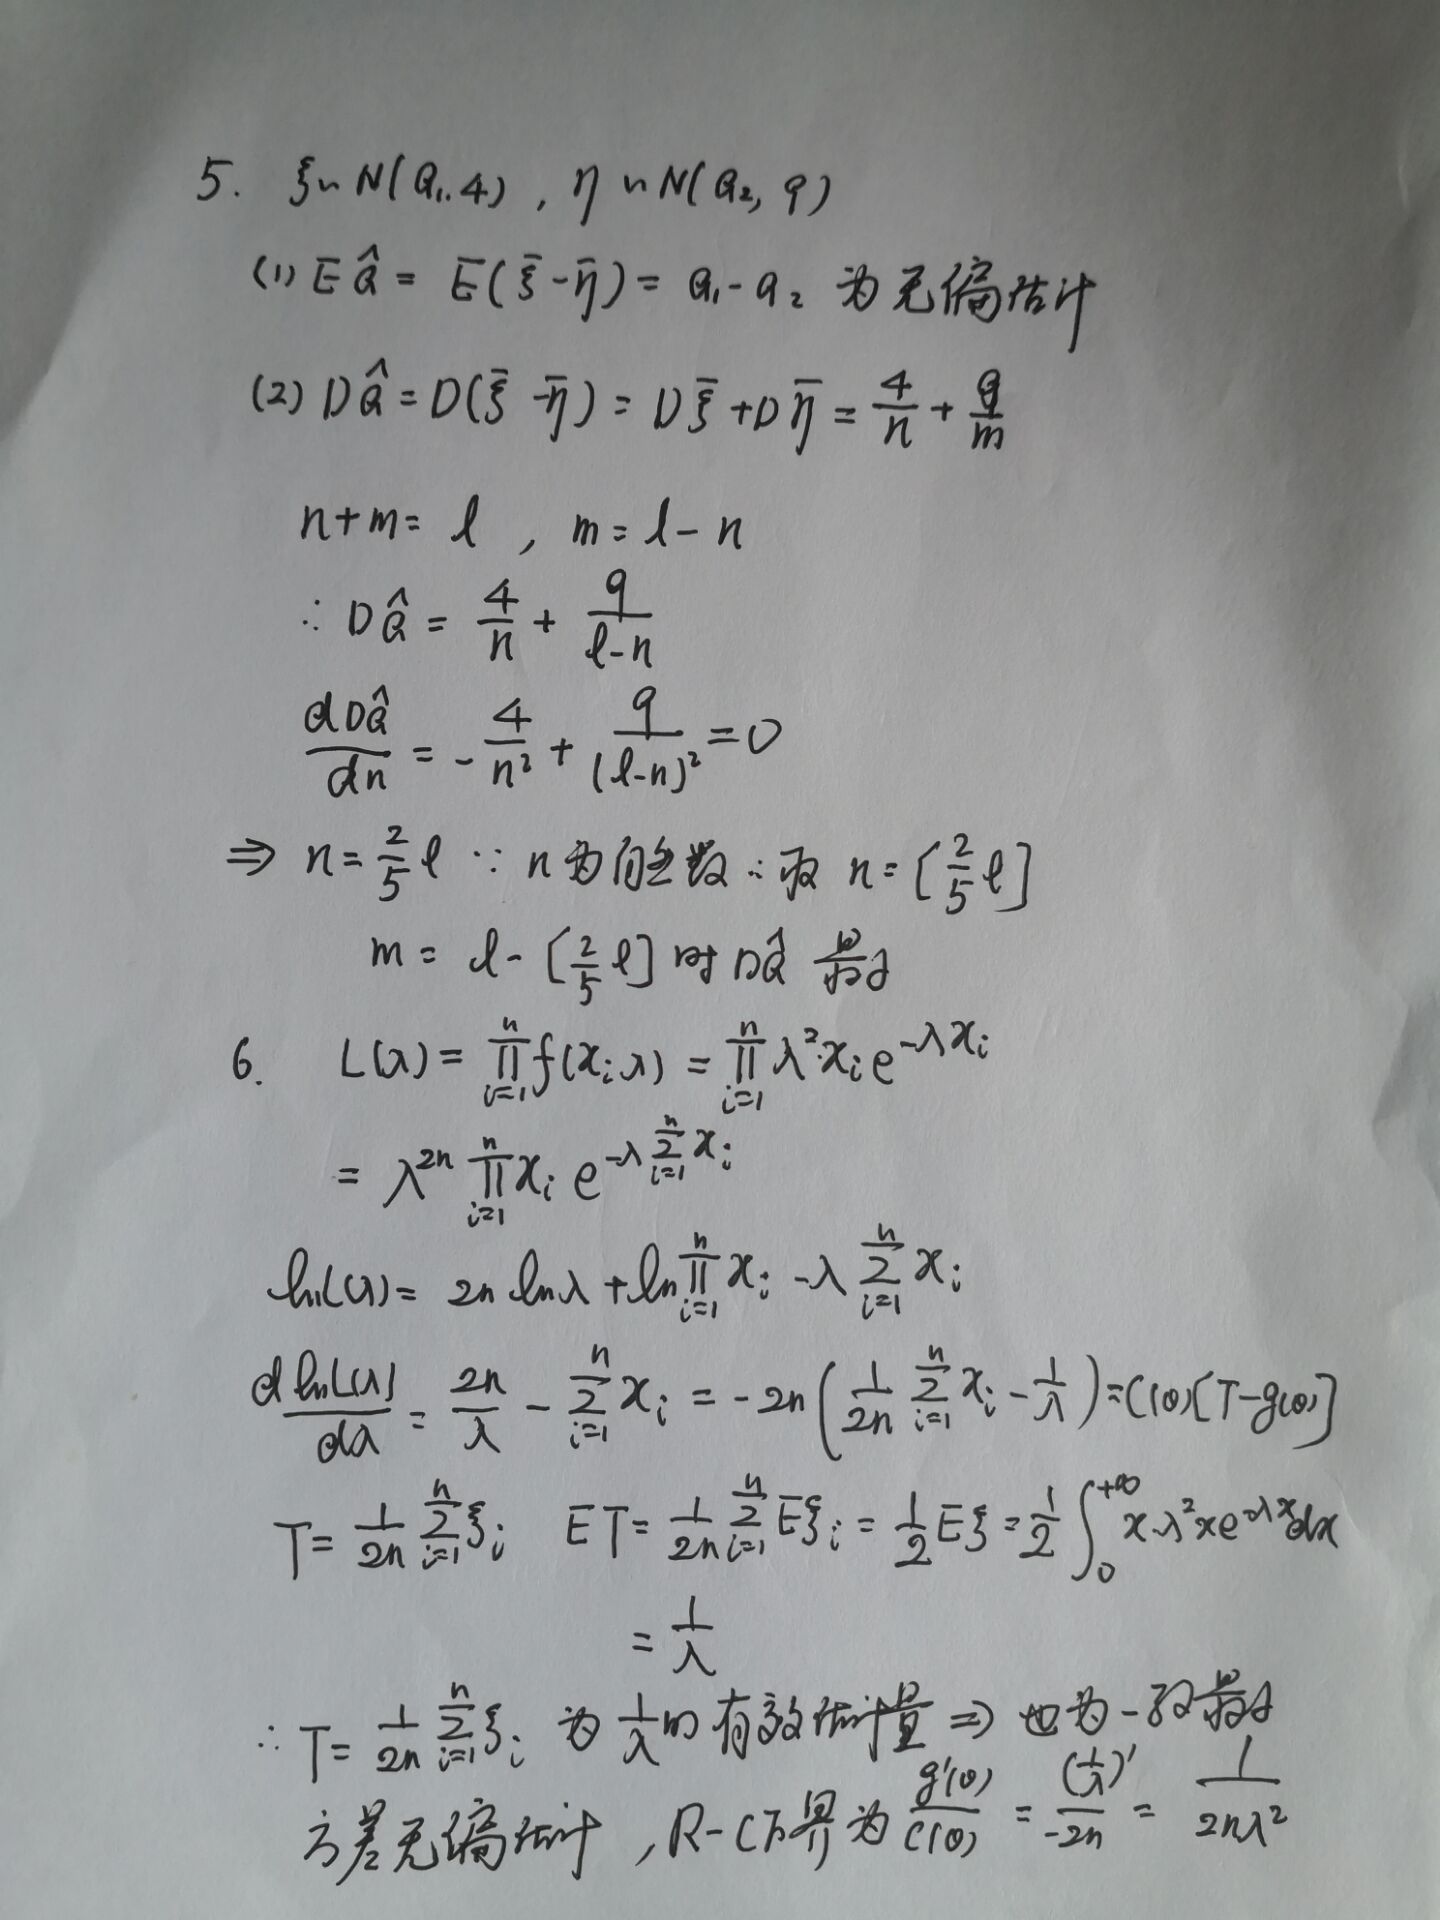 5. ξ~N(a₁.4), η~N(a₂, 9)
(1) Eâ = E(ξ̄-η̄) = a₁-a₂ 为无偏估计
(2) Dâ = D(ξ̄-η̄) = Dξ̄+Dη̄ = 4/n + 9/m
n+m = l , m = l-n
∴ Dâ = 4/n + 9/(l-n)
dDâ/dn = -4/n² + 9/(l-n)² = 0
⇒ n = 2/5 l ∵ n为 数 ∴取 n = [2/5 l]
m = l-[2/5 l] 时 Dâ 最小
6. L(λ) = ∏ᵢ₌₁ⁿ f(xᵢ,λ) = ∏ᵢ₌₁ⁿ λ²·xᵢe^(-λxᵢ)
= λ²ⁿ ∏ᵢ₌₁ⁿ xᵢ e^(-λ∑ᵢ₌₁ⁿ xᵢ)
lnL(λ) = 2n lnλ + ln∏ᵢ₌₁ⁿ xᵢ - λ∑ᵢ₌₁ⁿ xᵢ
dlnL(λ)/dλ = 2n/λ - ∑ᵢ₌₁ⁿ xᵢ = -2n(1/2n ∑ᵢ₌₁ⁿ xᵢ - 1/λ) = C(θ)[T-g(θ)]
T = 1/2n ∑ᵢ₌₁ⁿ ξᵢ ET = 1/2n ∑ᵢ₌₁ⁿ Eξᵢ = 1/2 Eξ = 1/2 ∫₀^(+∞) x·λ²xe^(-λx)dx
= 1/λ
∴ T = 1/2n ∑ᵢ₌₁ⁿ ξᵢ 为 1/λ 的有效估计量 ⇒ 也为一致最小
方差无偏估计 , R-C下界为 g'(θ)/C(θ) = (1/λ)'/-2n = 1/2nλ²